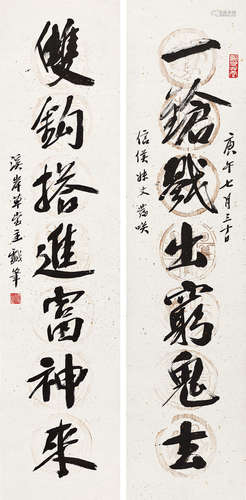 庚午七月三十日
一鎗戳出窮鬼去
信侯姓丈萏咲
雙鈎搭進富神來
溪岸草堂主戲筆